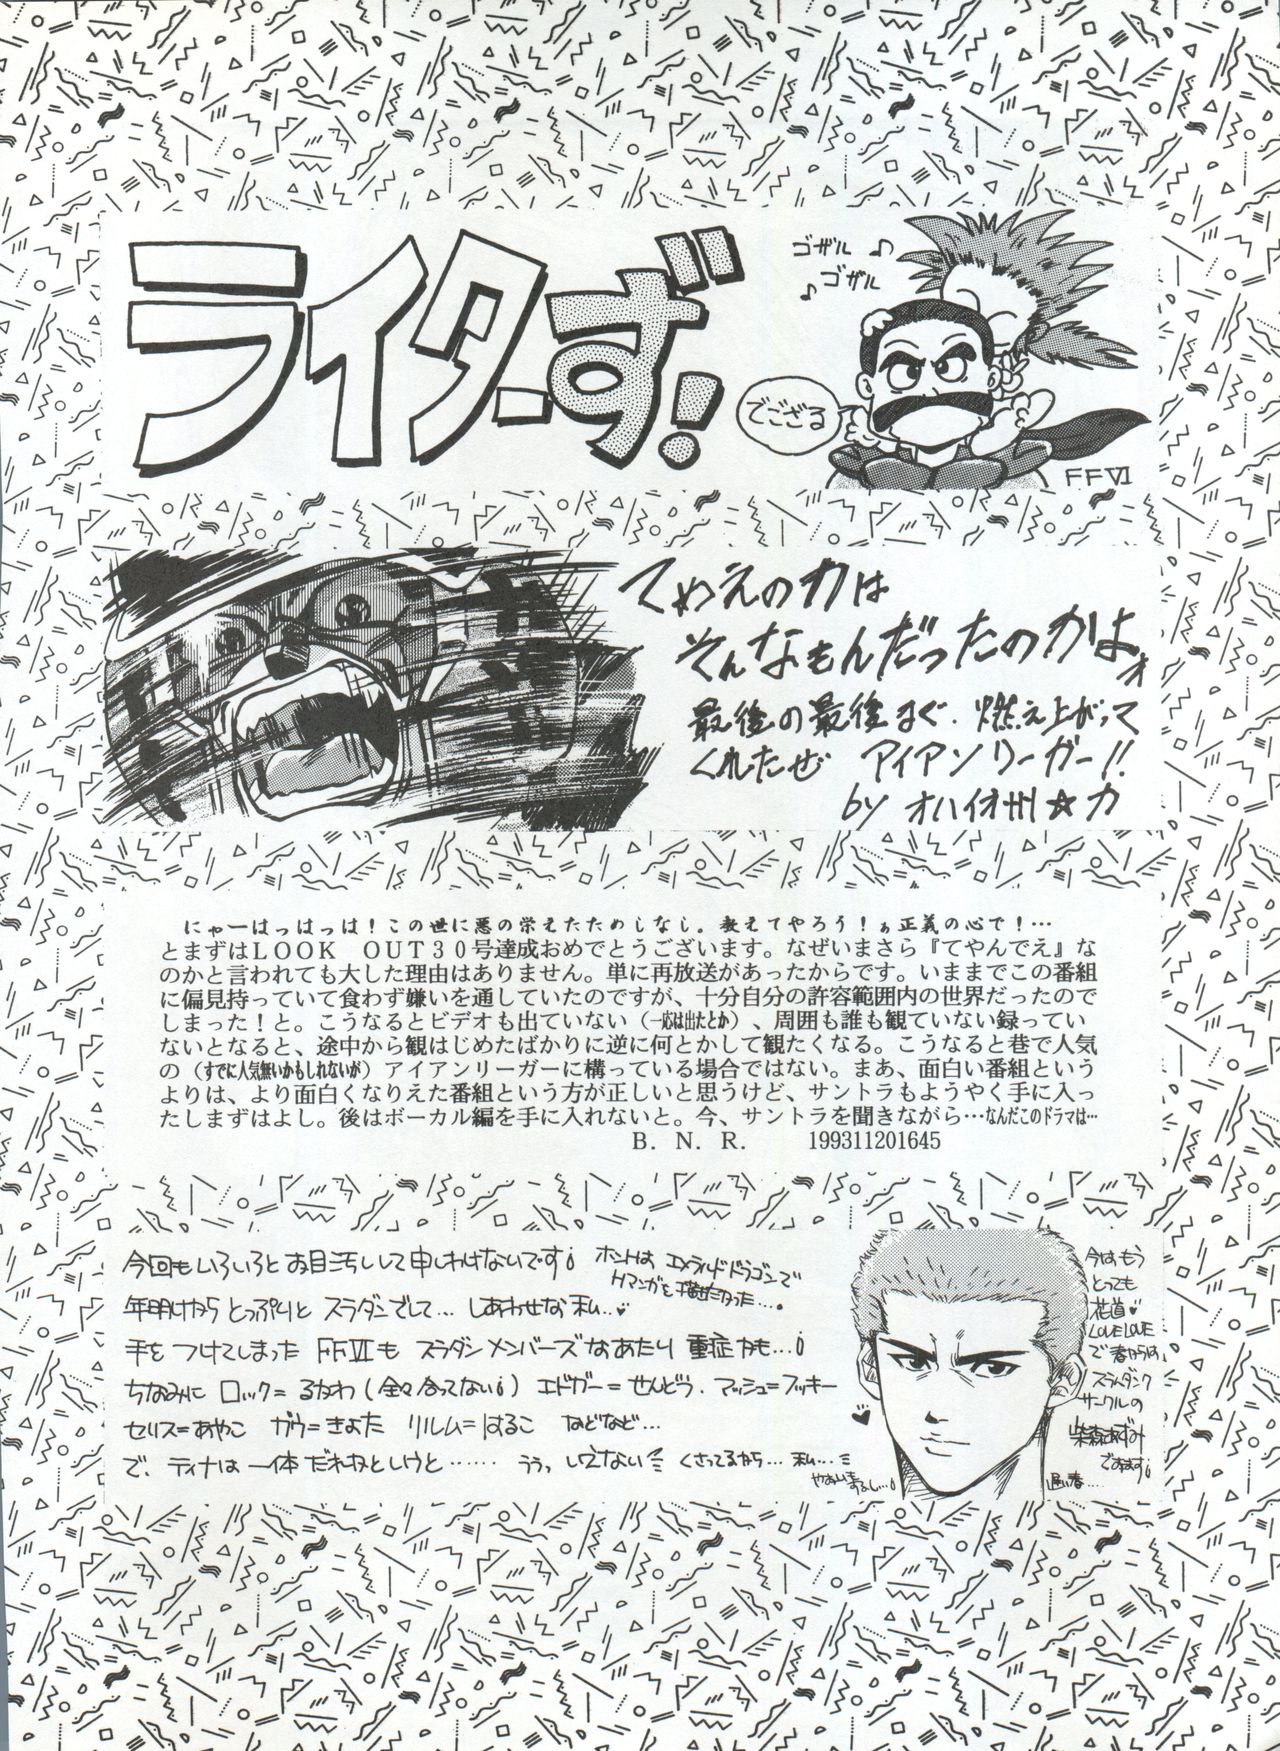 ライターず!
ゴザル♪
♪ゴザル
でござる
FFⅥ
てめえの力は
そんなもんだったのかよォ
最後の最後まで、燃え上がって
くれたぜ アイアンリーガー!!
by オハイオ州☆力
にゃーはっはっは!この世に悪の栄えたためしなし。教えてやろう!ぁ正義の心で!…
とまずはLOOK OUT30号達成おめでとうございます。なぜいまさら『てやんでえ』な
のかと言われても大した理由はありません。単に再放送があったからです。いままでこの番組
に偏見持っていて食わず嫌いを通していたのですが、十分自分の許容範囲内の世界だったので
しまった!と。こうなるとビデオも出ていない(一応は出たとか)、周囲も誰も観ていない録ってい
ないとなると、途中から観はじめたばかりに逆に何とかして観たくなる。こうなると巷で人気
の(すでに人気無いかもしれないが)アイアンリーガーに構っている場合ではない。まあ、面白い番組という
よりは、より面白くなりえた番組という方が正しいと思うけど、サントラもようやく手に入っ
たしまずはよし。後はボーカル編を手に入れないと。今、サントラを聞きながら…なんだこのドラマは…
B. N. R. 199311201645
今回もいろいろとお目汚しして申しわけないです!
ホントは エメラルドドラゴンで
マンガを描きたかった…。
年明けから とっぷりと スラダンでして… しあわせな私…♥
手をつけてしまった FFⅥも スラダンメンバーズなあたり 重症かも…!
ちなみに ロック=るかわ(全々合ってない!) エドガー=せんどう. マッシュ=フッキー
セリス=あやこ ガウ=きよた リルム=はるこ などなど…
で、ティナは一体だれかというと…… ううっ いえない くさってるから… 私…
今はもう
とっても
花道♥
LOVE LOVE
で 春からは
スラムダンク
サークルの
柴森あずみ
でおます!